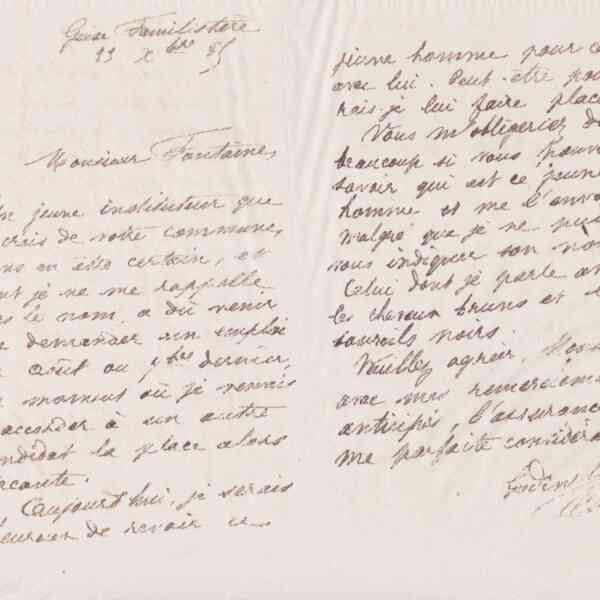 Guise Familistère
23 Xbre 85
Monsieur Fontaine,
Un jeune instituteur que
crois de votre commune,
sans en être certain, et
dont je ne me rappelle
pas le nom, a dû venir
me demander un emploi
en août ou 7bre dernier,
au moment où je venais
d'accorder à un autre
candidat la place alors
vacante.
Aujourd'hui, je serais
heureux de revoir ce
jeune homme pour
avec lui. Peut-être
rais-je lui faire place
Vous m'obligeriez
beaucoup si vous
savoir qui est ce jeune
homme et me l'
malgré que je ne
vous indiquer son
Celui dont je parle
les cheveux bruns et
sourcils noirs.
Veuillez agréer,
avec mes
anticipés, l'assurance
me parfaite